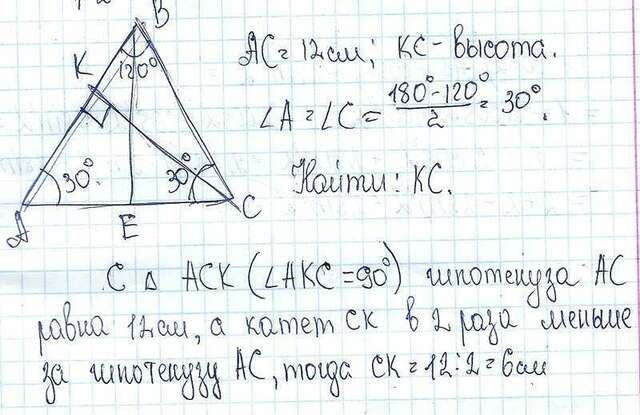 B
120°
K
30°
30°
A
E
C
AC = 12 см; KC - высота.
∠A = ∠C = (180° - 120°)/2 = 30°.
Найти: KC.
С △ ACK (∠AKC = 90°) гипотенуза AC
равна 12 см, а катет CK в 2 раза меньше
за гипотенузу AC, тогда CK = 12 : 2 = 6 см